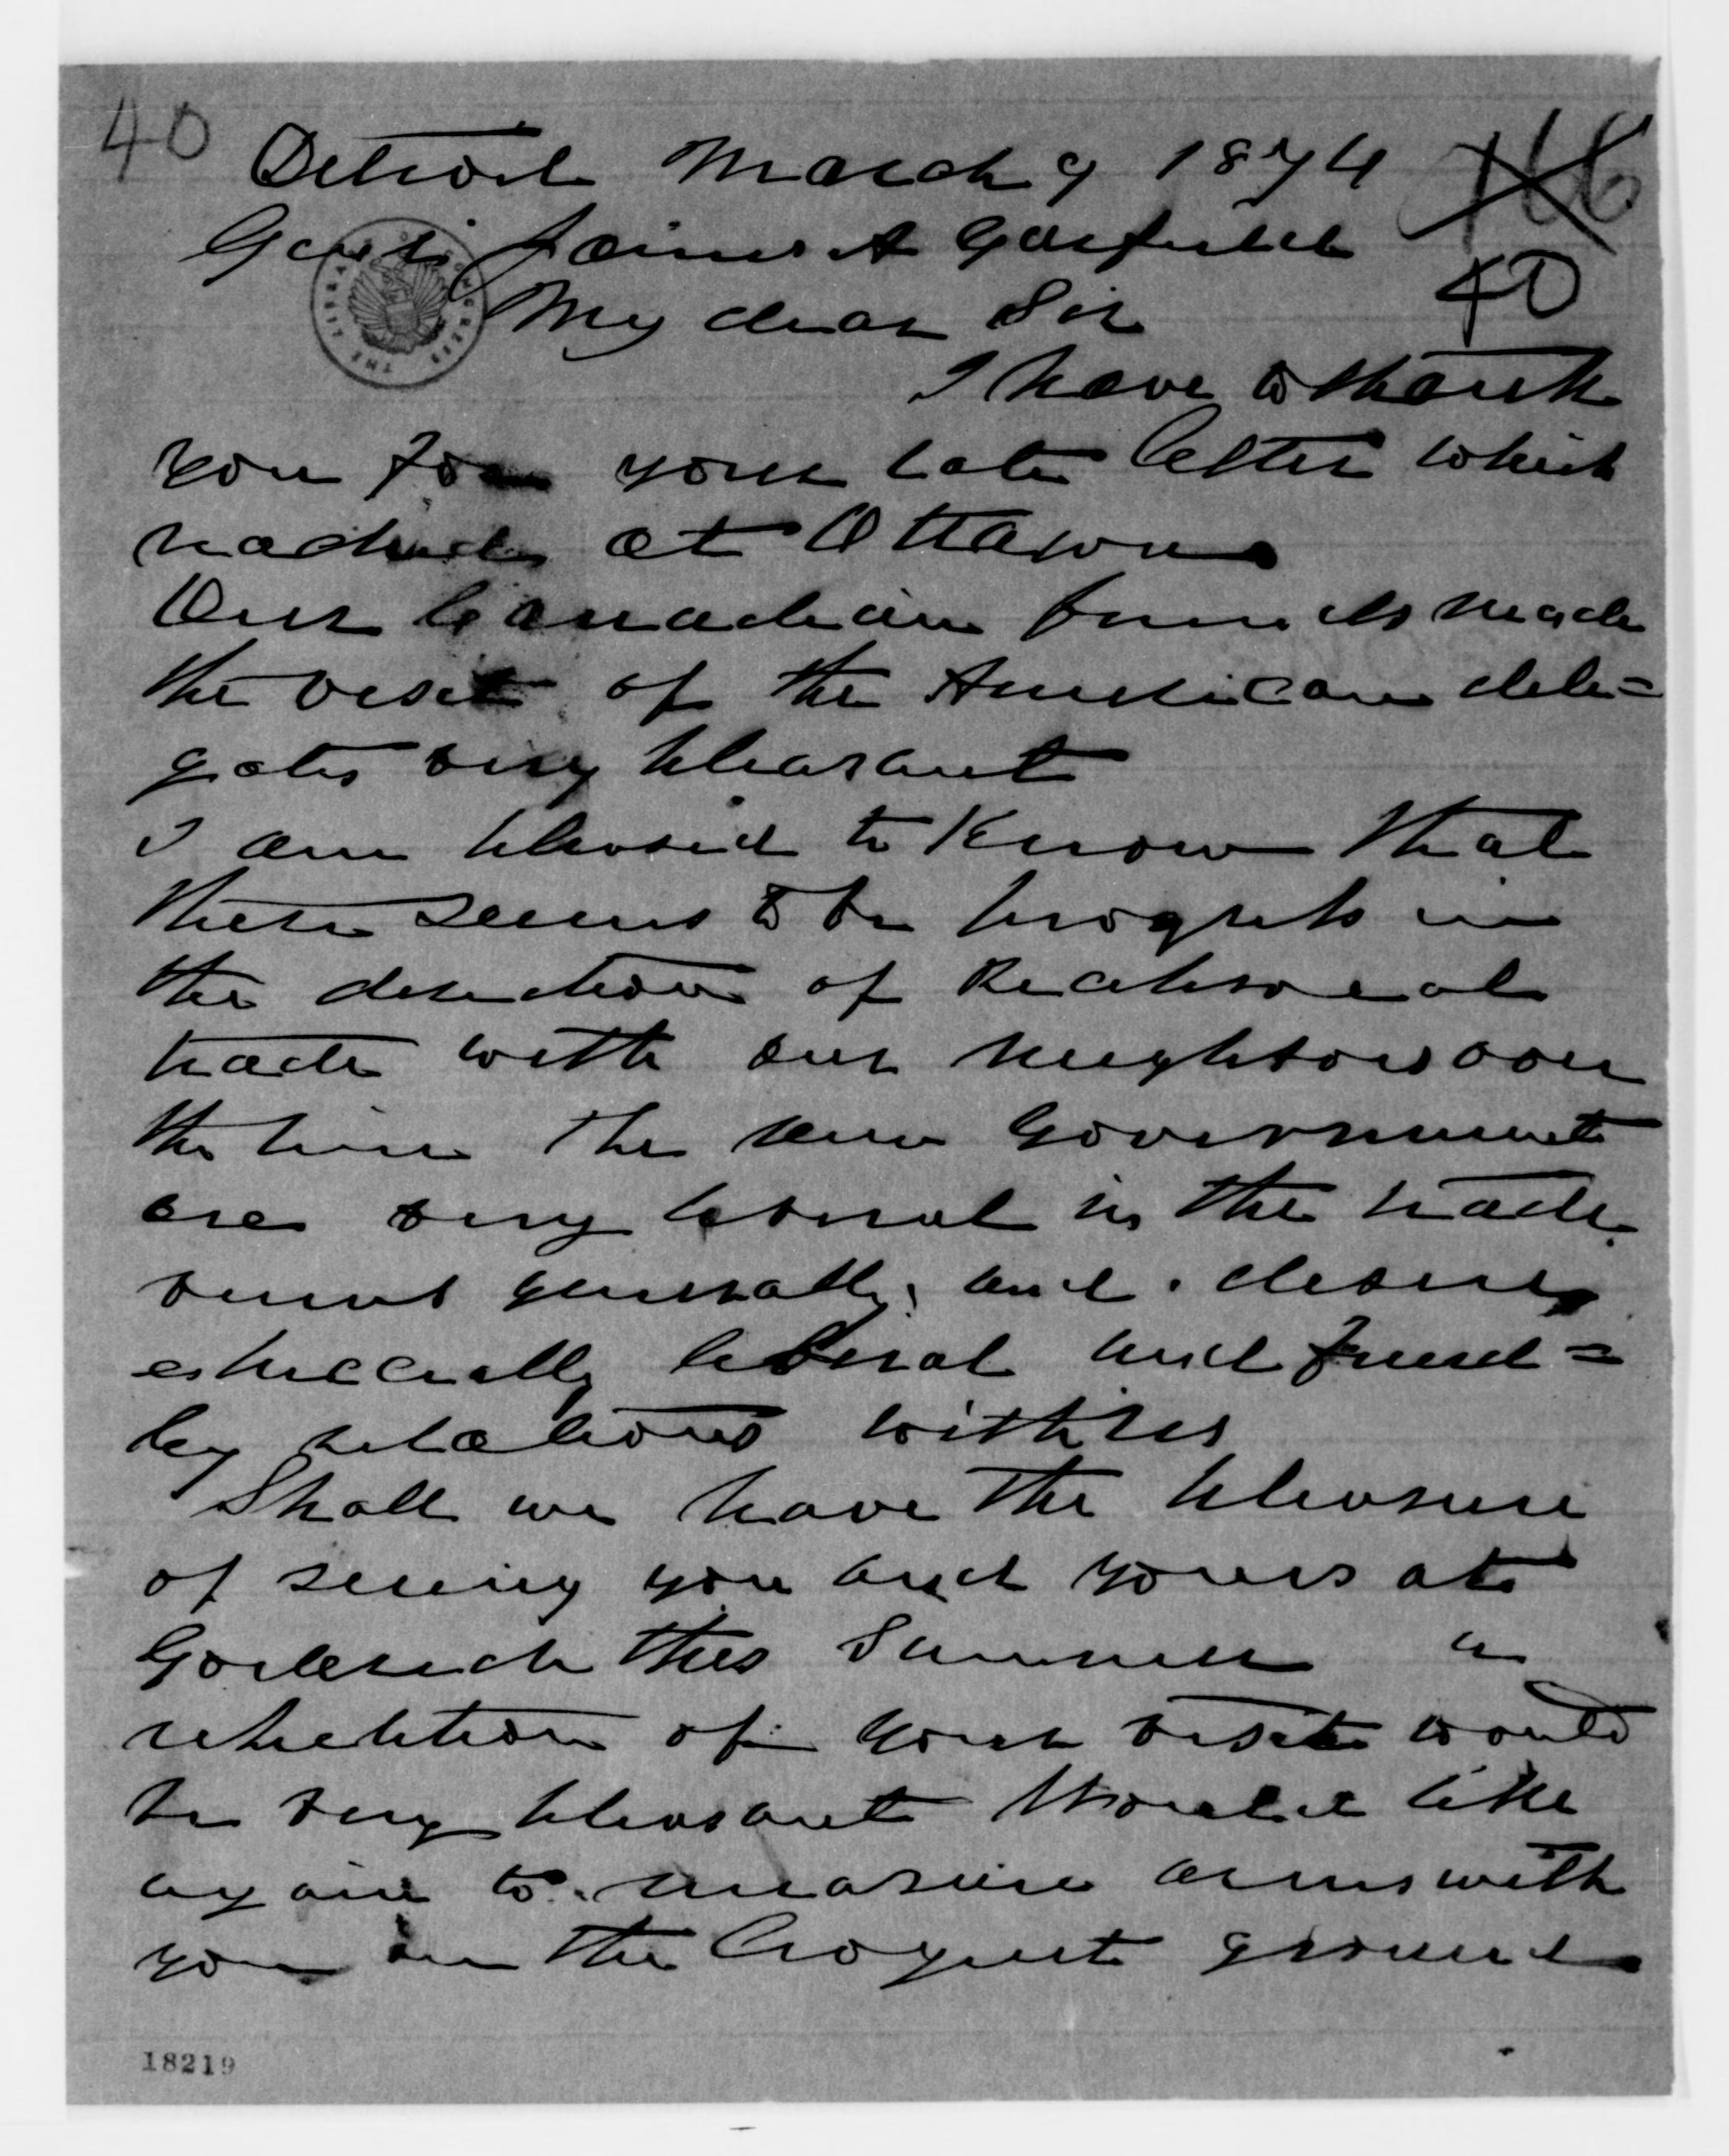 40
Detroit March 9 1874
166
Genl James A Garfield
40
My dear Sir
I have to thank
you for your late letter which
reached at Ottawa
Our Canadian friends made
the visit of the American dele=
gates very pleasant
I am pleased to know that
there seems to be progress in
the direction of Reciprocal
trade with our neighbors over
the line The new Government
are very liberal in the trade
views generally, and desires
especially liberal and friend=
ly relations with us
Shall we have the pleasure
of seeing you and yours at
Goderich this Summer a
repetition of your visit would
be very pleasant Should like
again to measure arms with
you on the Croquet ground
THE LIBRARY OF CONGRESS
18219